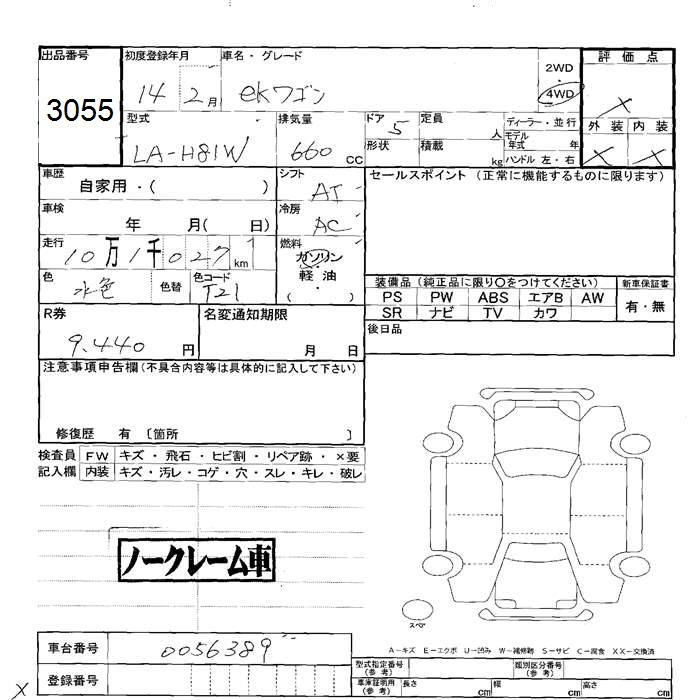 出品番号 初度登録年月 車名・グレード 評価点
3055 14 2月 ekワゴン 2WD・4WD X
型式 排気量 ドア 5 定員 人 ディーラー・並行 外装 内装
LA-H81W 660cc 形状 積載 kg モデル年式 年 X X
ハンドル 左・右
車歴 自家用・( ) シフト AT セールスポイント (正常に機能するものに限ります)
車検 年 月( 日) 冷房 AC
走行 10万1千027km 燃料 ガソリン・軽油・( )
色 水色 色替 色コード T21 装備品 (純正品に限り○をつけてください) 新車保証書
PS PW ABS エアB AW 有・無
SR ナビ TV カワ
R券 名変通知期限 後日品
9,440円 月 日
注意事項申告欄(不具合内容等は具体的に記入して下さい)
修復歴 有 〔箇所 〕
検査員 FW キズ・飛石・ヒビ割・リペア跡・×要
記入欄 内装 キズ・汚レ・コゲ・穴・スレ・キレ・破レ
ノークレーム車
スペア
A-キズ E-エクボ U-凹み W-補修跡 S-サビ C-腐食 XX-交換済
車台番号 0056389 型式指定番号(参考) 類別区分番号(参考)
登録番号 車庫証明用(参考) 長さ cm 幅 cm 高さ cm
X